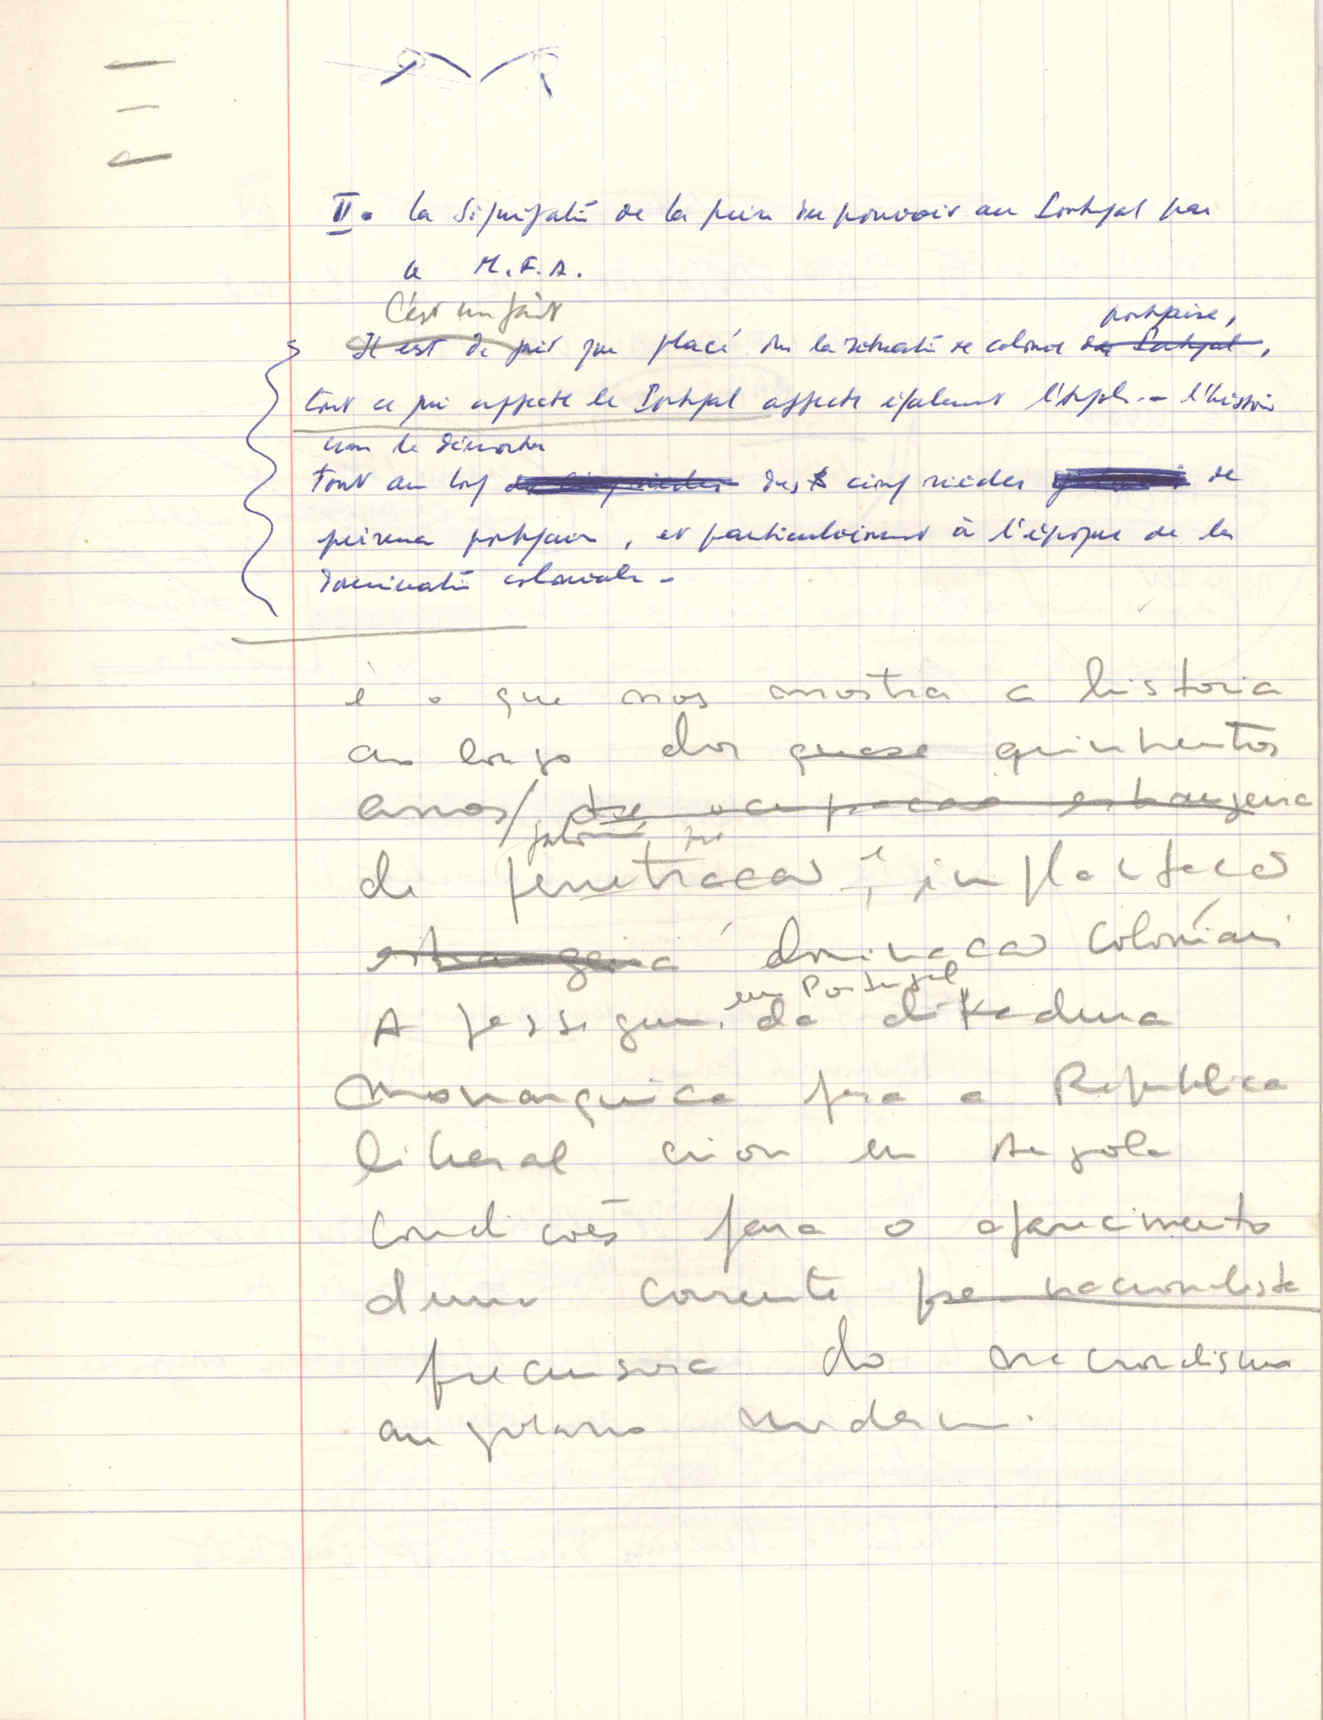 II. La signification de la prise du pouvoir au Portugal par
le M.F.A.
C'est un fait
portugaise,
Il est de fait que placé dans la situation de colonie du Portugal,
tout ce qui affecte le Portugal affecte également l'Angola. - l'histoire
nous le démontre
tout au long des cinq siècles de
présence portugaise, et particulièrement à l'époque de la
domination coloniale -
é o que nos mostra a historia
ao longo dos quase quinhentos
anos/ de ocupação estrangeira
de penetração, implantação
estrangeira dominação coloniais
em Portugal
A passagem, da ditadura
monarquica para a Republica
liberal criou em Angola
condicões para o aparecimento
duma corrente pre nacionalista
precursora do nacionalismo
angolano moderno.